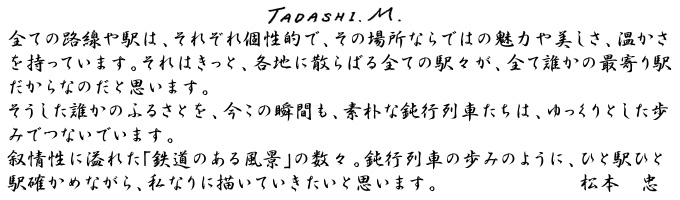 TADASHI.M.
全ての路線や駅は、それぞれ個性的で、その場所ならではの魅力や美しさ、温かさ
を持っています。それはきっと、各地に散らばる全ての駅々が、全て誰かの最寄り駅
だからなのだと思います。
そうした誰かのふるさとを、今この瞬間も、素朴な鈍行列車たちは、ゆっくりとした歩
みでつないでいます。
叙情性に溢れた「鉄道のある風景」の数々。鈍行列車の歩みのように、ひと駅ひと
駅確かめながら、私なりに描いていきたいと思います。 松本 忠